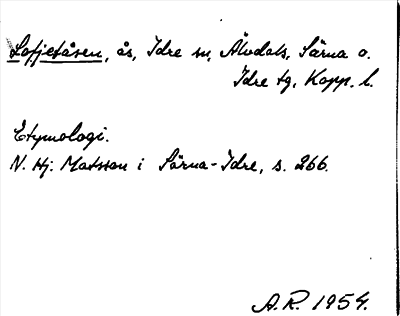 Lofjetåsen, ås, Idre sn, Älvdals, Särna o.
Idre tg, Kopp. l.
Etymologi.
N. Hj. Matsson i Särna-Idre, s. 266.
A.R. 1954.